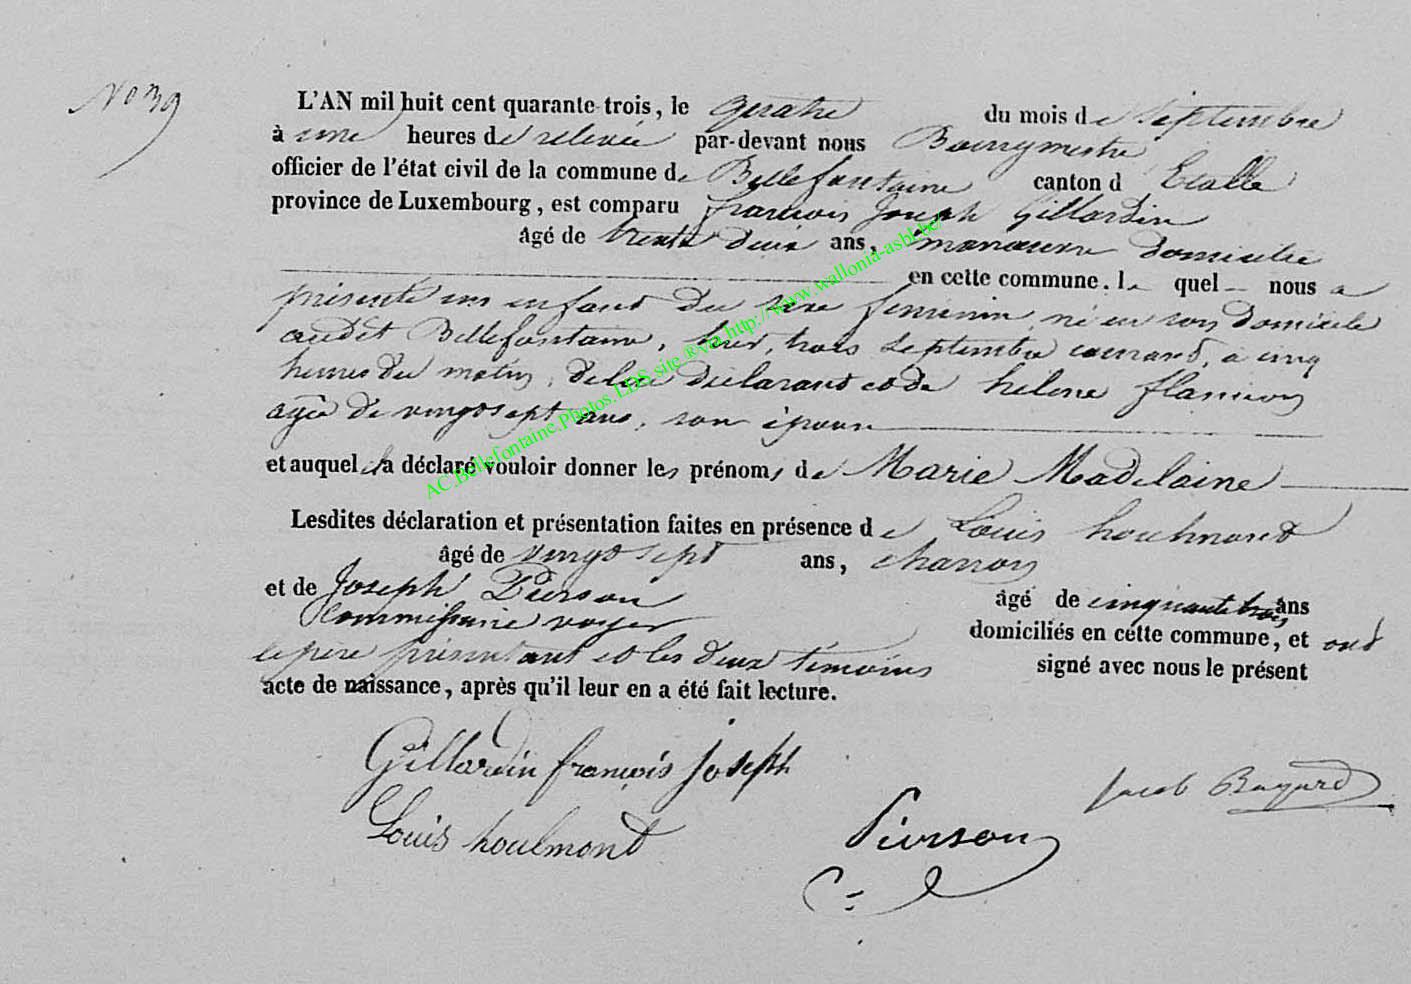 No 39
L'AN mil huit cent quarante-trois, le quatre du mois de Septembre
à une heures de relevée par-devant nous Bourgmestre
officier de l'état civil de la commune de Bellefontaine canton d Etalle
province de Luxembourg, est comparu françois Joseph Gillardin
âgé de trente deux ans, manoeuvre domicilié
en cette commune. le quel nous a
présenté un enfant du sexe féminin, né en son domicile
audit Bellefontaine, hier, trois Septembre courant, a cinq
heures du matin, de lui déclarant et de héléne flamion
agée de vingt sept ans, son épouse
et auquel il a déclaré vouloir donner les prénoms de Marie Madelaine
Lesdites déclaration et présentation faites en présence de Louis houlmont
âgé de vingt sept ans, charron
et de Joseph Pierson âgé de cinquante trois ans
Commissaire voyer domiciliés en cette commune, et ont
le père présentant et les deux témoins signé avec nous le présent
acte de naissance, après qu'il leur en a été fait lecture.
Gillardin françois joseph
Jacob Bayard
Louis houlmont
Pierson
AC.Bellefontaine.Photos.LDS.site.®via http://www.wallonia-asbl.be/